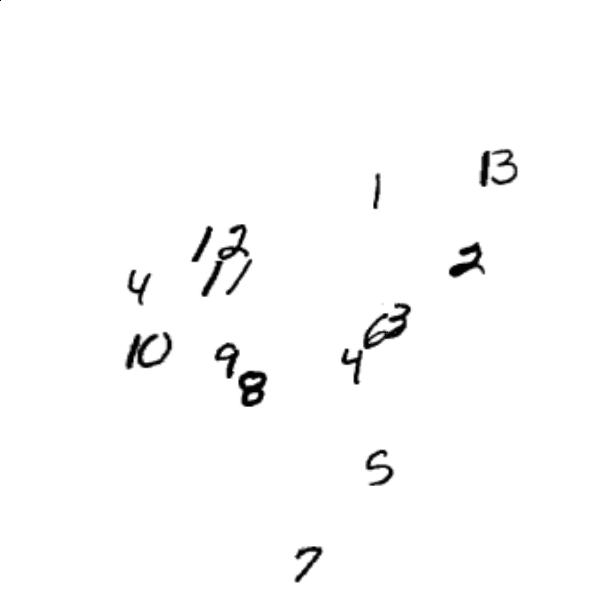 13
1
12
2
4 11
63
10 9 4
8
5
7